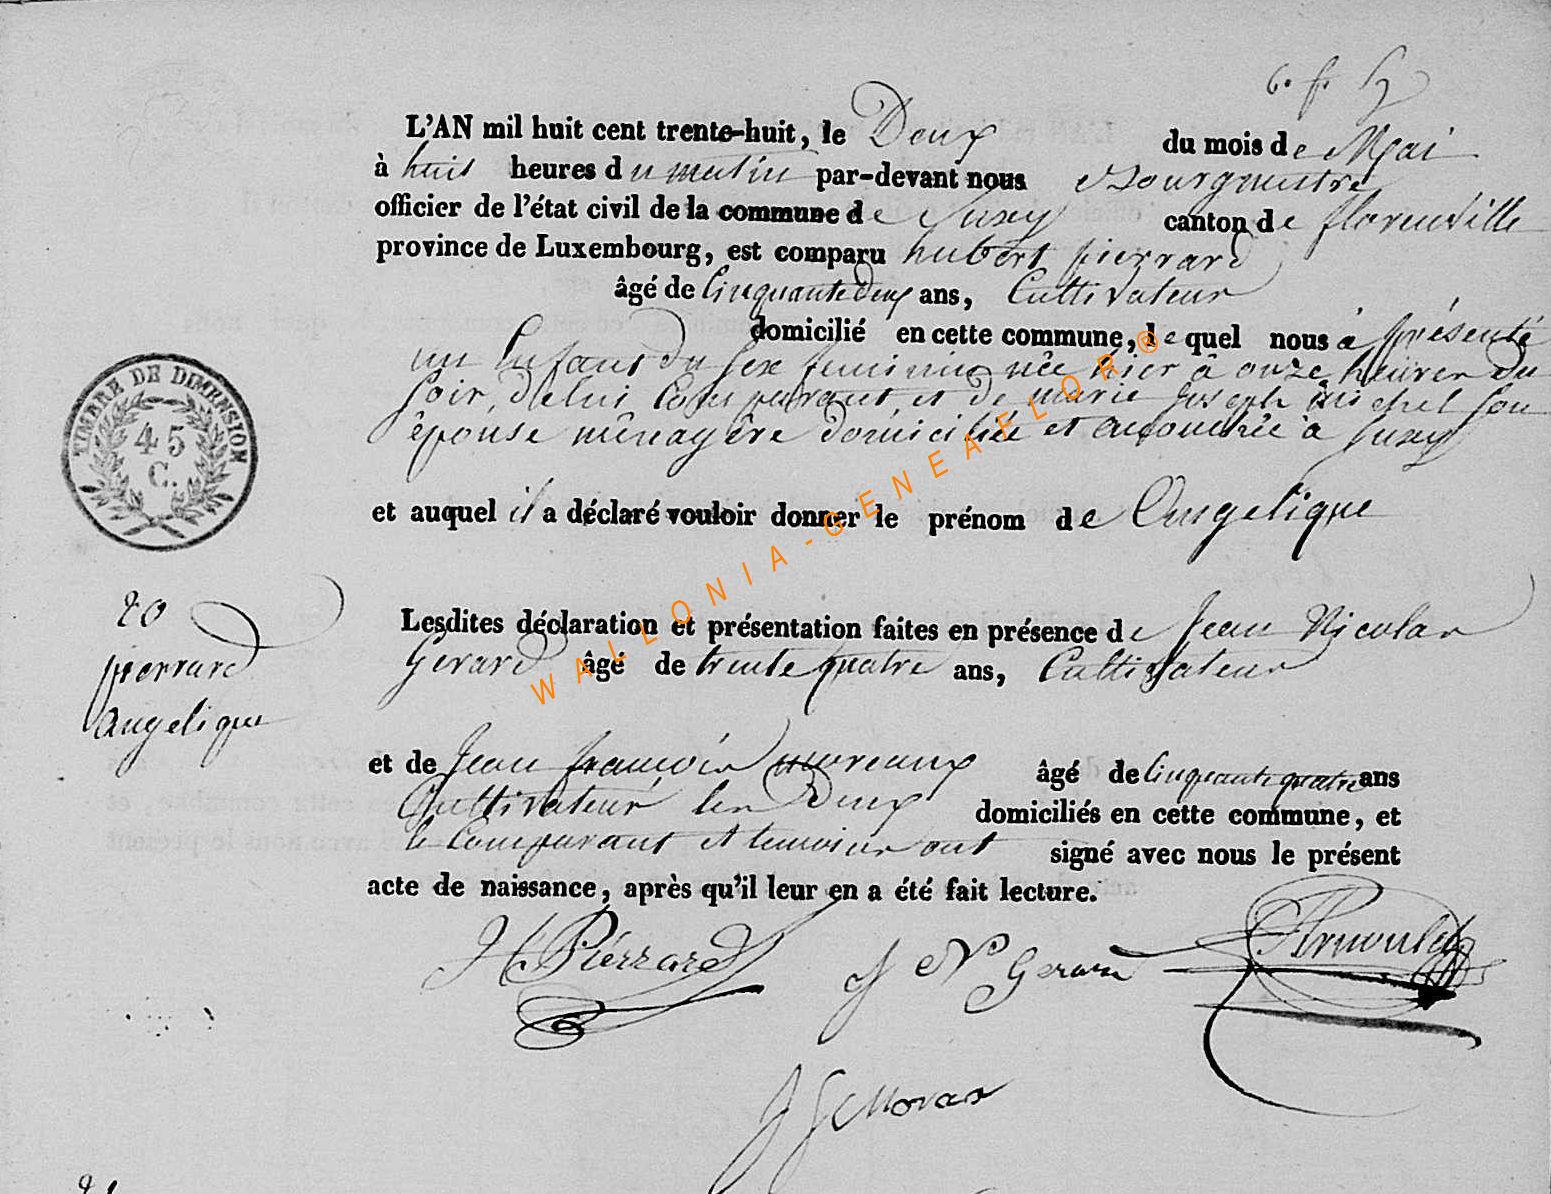 L'AN mil huit cent trente-huit, le Deux du mois de Mai
à huit heures du matin par-devant nous Bourgmestre
officier de l'état civil de la commune de Suxy canton de florenville
province de Luxembourg, est comparu hubert pierrard
âgé de Cinquante deux ans, Cultivateur
domicilié en cette commune, le quel nous a présenté
un Enfant du sexe feminin née hier à onze heures du
soir, de lui Comparant et de marie Joseph michel son
épouse ménagère domiciliée et accouchée à Suxy
TIMBRE DE DIMENSION
45
C.
et auquel il a déclaré vouloir donner le prénom de Angelique
WALLONIA-GENEAFLOR®
20
pierrard
angelique
Lesdites déclaration et présentation faites en présence de Jean Nicolas
Gerard âgé de trente quatre ans, Cultivateur
et de Jean françois moreaux âgé de Cinquante quatre ans
Cultivateur les Deux domiciliés en cette commune, et
le Comparant et temoins ont signé avec nous le présent
acte de naissance, après qu'il leur en a été fait lecture.
H Pierrard J N Gerard Arnould
J f Moraux
21